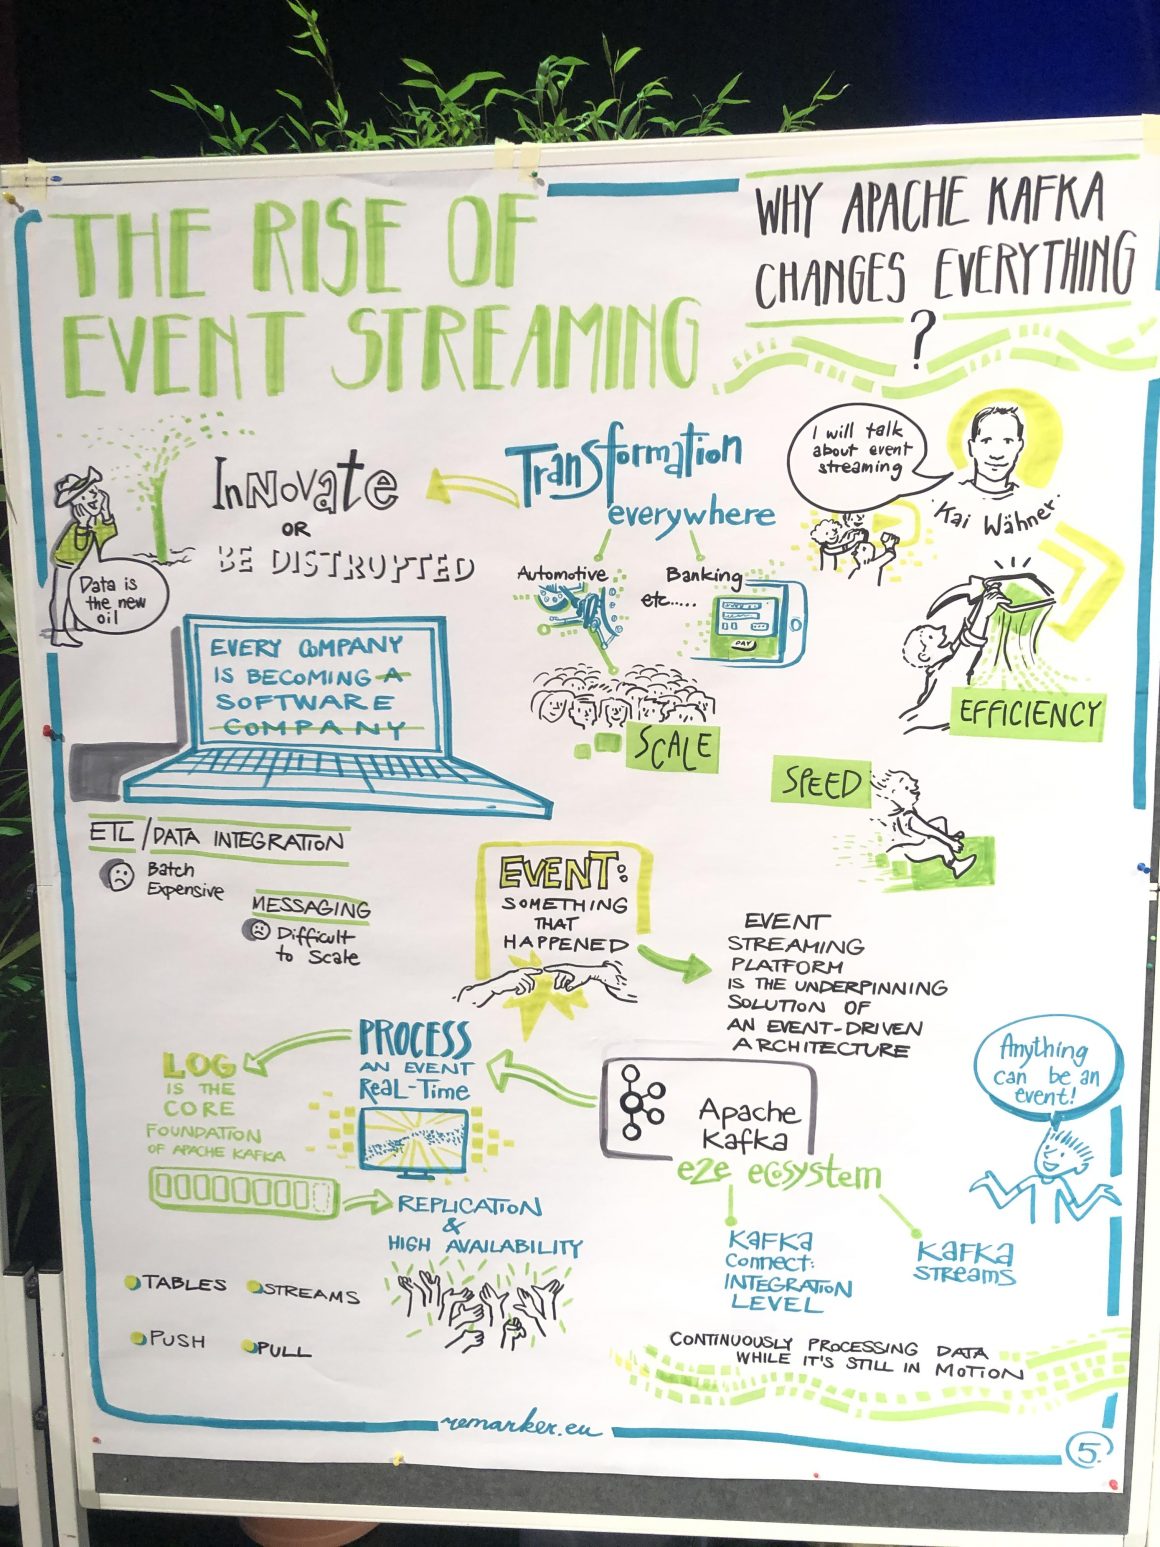 THE RISE OF
EVENT STREAMING
WHY APACHE KAFKA
CHANGES EVERYTHING
?
I will talk
about event
streaming
Kai Wähner
Data is
the new
oil
INNOVATE
OR
BE DISTRUPTED
Transformation
everywhere
Automotive
Banking
etc.....
PAY
EVERY COMPANY
IS BECOMING A
SOFTWARE
COMPANY
SCALE
EFFICIENCY
SPEED
ETL/DATA INTEGRATION
Batch
Expensive
MESSAGING
Difficult
to Scale
EVENT:
SOMETHING
THAT
HAPPENED
EVENT
STREAMING
PLATFORM
IS THE UNDERPINNING
SOLUTION OF
AN EVENT-DRIVEN
ARCHITECTURE
Anything
can be an
event!
PROCESS
AN EVENT
REAL-TIME
LOG
IS THE
CORE
FOUNDATION
OF APACHE KAFKA
Apache
Kafka
e2e ecosystem
KAFKA
Connect:
INTEGRATION
LEVEL
KAFKA
STREAMS
REPLICATION
&
HIGH AVAILABILITY
TABLES
STREAMS
PUSH
PULL
CONTINUOUSLY PROCESSING DATA
WHILE IT'S STILL IN MOTION
remarker.eu
5.